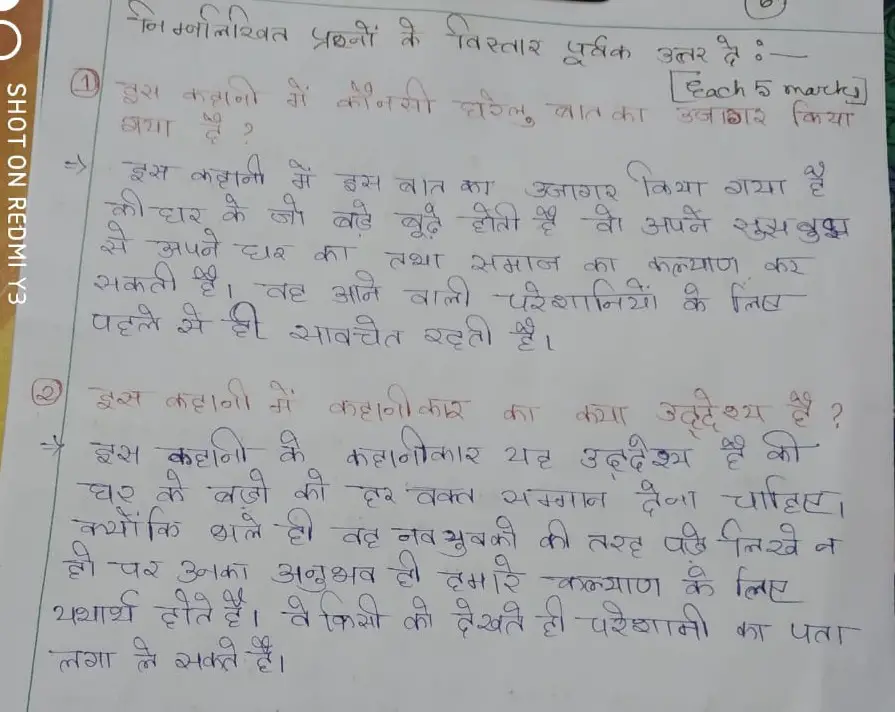 6
निम्नलिखित प्रश्नों के विस्तार पूर्वक उत्तर दे :—
[Each 5 marks]
① इस कहानी में कौनसी घरेलु बात का उजागर किया
गया है ?
⇒ इस कहानी में इस बात का उजागर किया गया है
की घर के जो बड़े बूढ़े होती है वो अपने सुझ बुझ
से अपने घर का तथा समाज का कल्याण कर
सकती है। वह आने वाली परेशानियों के लिए
पहले से ही सावचेत रहती है।
② इस कहानी में कहानीकार का क्या उद्देश्य है ?
→ इस कहानी के कहानीकार यह उद्देश्य है की
घर के बड़ो को हर वक्त सम्मान देना चाहिए।
क्योंकि भले ही वह नवयुवको की तरह पढ़े लिखे न
हो पर उनका अनुभव ही हमारे कल्याण के लिए
यथार्थ होते है। वे किसी को देखते ही परेशानी का पता
लगा ले सकते है।
SHOT ON REDMI Y3